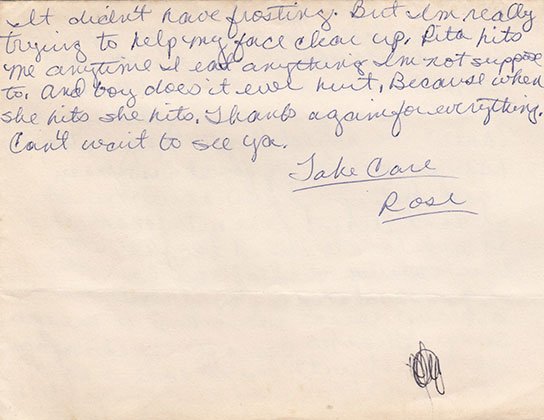 It didn't have frosting. But I'm really
trying to help my face clear up. Rita hits
me anytime I eat anything I'm not suppose
to. And boy does it ever hurt, Because when
she hits she hits. Thanks again for everything.
Can't wait to see ya.
Take Care
Rose